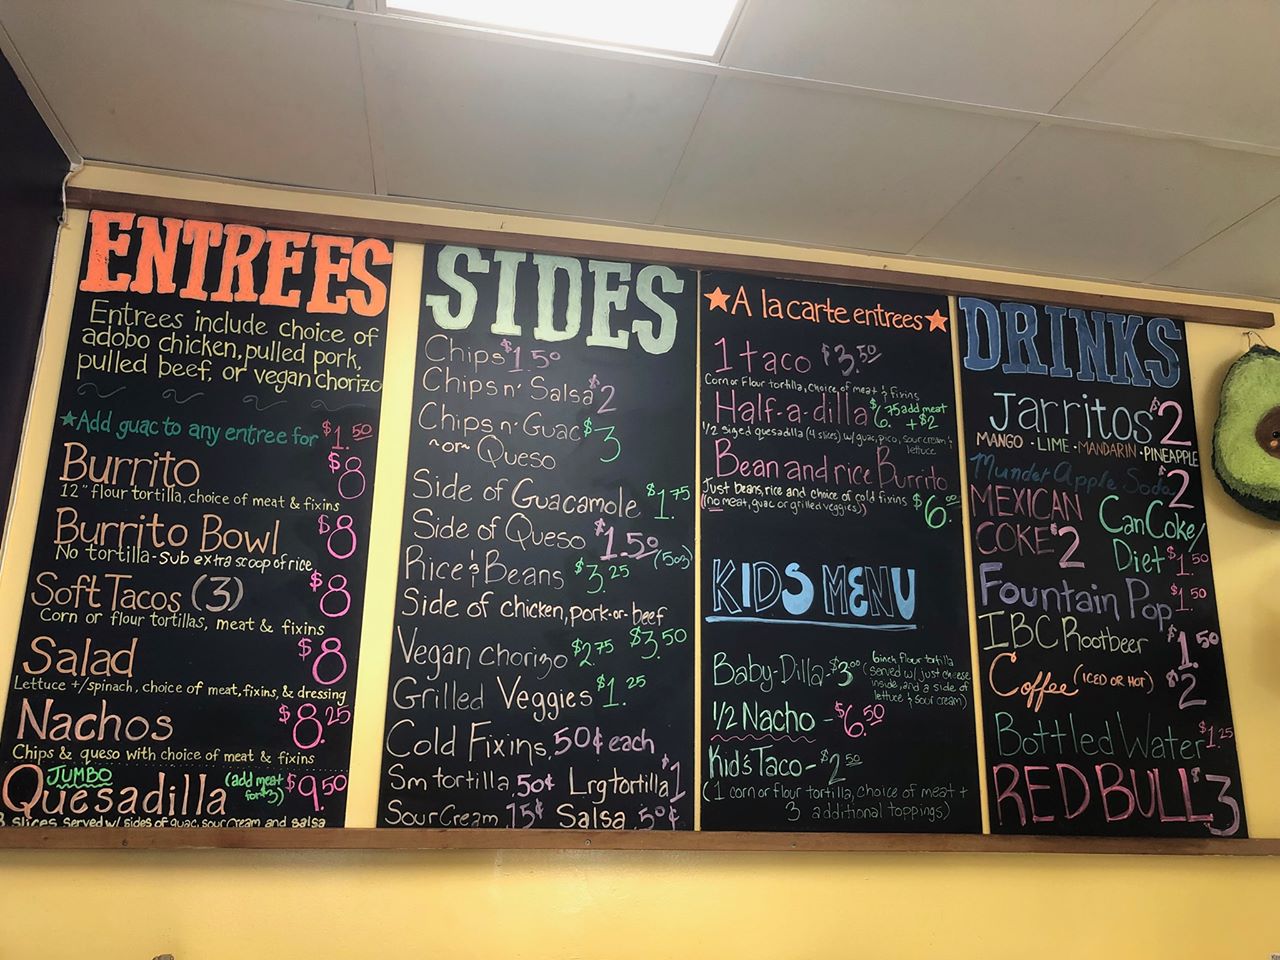 ENTREES
Entrees include choice of
adobo chicken, pulled pork,
pulled beef, or vegan chorizo
★Add guac to any entree for $1.50
Burrito $8
12" flour tortilla, choice of meat & fixins
Burrito Bowl $8
No tortilla-sub extra scoop of rice
Soft Tacos (3) $8
Corn or flour tortillas, meat & fixins
Salad $8
Lettuce +/spinach, choice of meat, fixins, & dressing
Nachos $8.25
Chips & queso with choice of meat & fixins
JUMBO
Quesadilla (add meat for $3) $9.50
slices served w/ sides of guac, sour cream and salsa
SIDES
Chips $1.50
Chips n' Salsa $2
Chips n' Guac $3
~or~ Queso
Side of Guacamole $1.75
Side of Queso $1.50 (5oz)
Rice & Beans $3.25
Side of chicken, pork-or-beef $3.50
Vegan chorizo $2.75
Grilled Veggies $1.25
Cold Fixins, 50¢ each
Sm tortilla, 50¢ Lrg Tortilla $1
Sour Cream .75¢ Salsa .50¢
★A la carte entrees★
1 taco $3.50
Corn or flour tortilla, choice of meat & fixins
Half-a-dilla $6.75 add meat + $2
1/2 sized quesadilla (4 slices) w/ guac, pico, sour cream & lettuce
Bean and rice Burrito
Just beans, rice and choice of cold fixins $6.00
(no meat, guac or grilled veggies)
KIDS MENU
Baby-Dilla-$3.00 (6inch flour tortilla
served w/ just cheese
inside, and a side of
lettuce & sour cream)
1/2 Nacho - $6.50
Kid's Taco - $2.50
(1 corn or flour tortilla, choice of meat +
3 additional toppings)
DRINKS
Jarritos $2
MANGO · LIME · MANDARIN · PINEAPPLE
Mundet Apple Soda $2
MEXICAN
COKE $2
Can Coke/
Diet $1.50
Fountain Pop $1.50
IBC Rootbeer $1.50
Coffee (ICED OR HOT) $2
Bottled Water $1.25
RED BULL $3